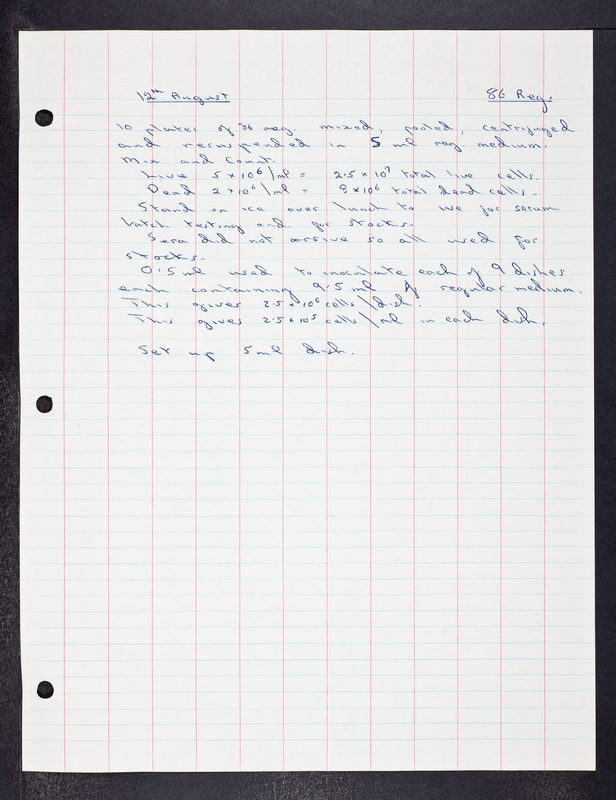 12th August 86 Reg.
10 plates of 86 reg. mixed, pooled, centrifuged
and resuspended in 5 ml reg. medium.
Mix and Count.
Live 5 x 10⁶/ml = 2.5 x 10⁷ total live cells.
Dead 2 x 10⁶/ml = 8 x 10⁶ total dead cells.
Stand on ice over lunch to use for serum
batch testing and for stocks.
Sera did not arrive so all used for
stocks.
0.5 ml used to inoculate each of 9 dishes
each containing 9.5 ml of regular medium.
This gives 2.5 x 10⁶ cells/dish.
This gives 2.5 x 10⁵ cells/ml in each dish.
Set up 5 ml dish.